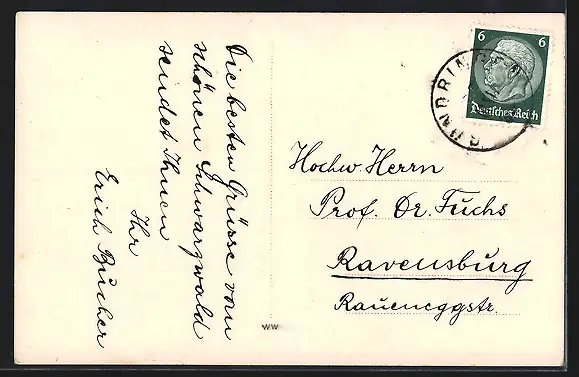 Die besten Grüsse vom
schönen Schwarzwald
sendet Ihnen
Ihr
Erich Bucher
6 6
Deutsches Reich
GÜNDRINGEN
Hochw. Herrn
Prof. Dr. Fuchs
Ravensburg
Raueneggstr.
WW